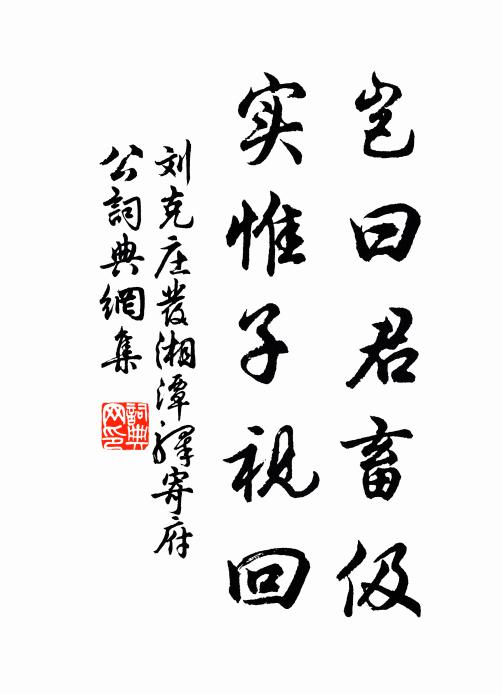 岂曰君畜伋
实惟子视回
刘克庄發湘潭驛寄府
公詞典網集
詞典
网印